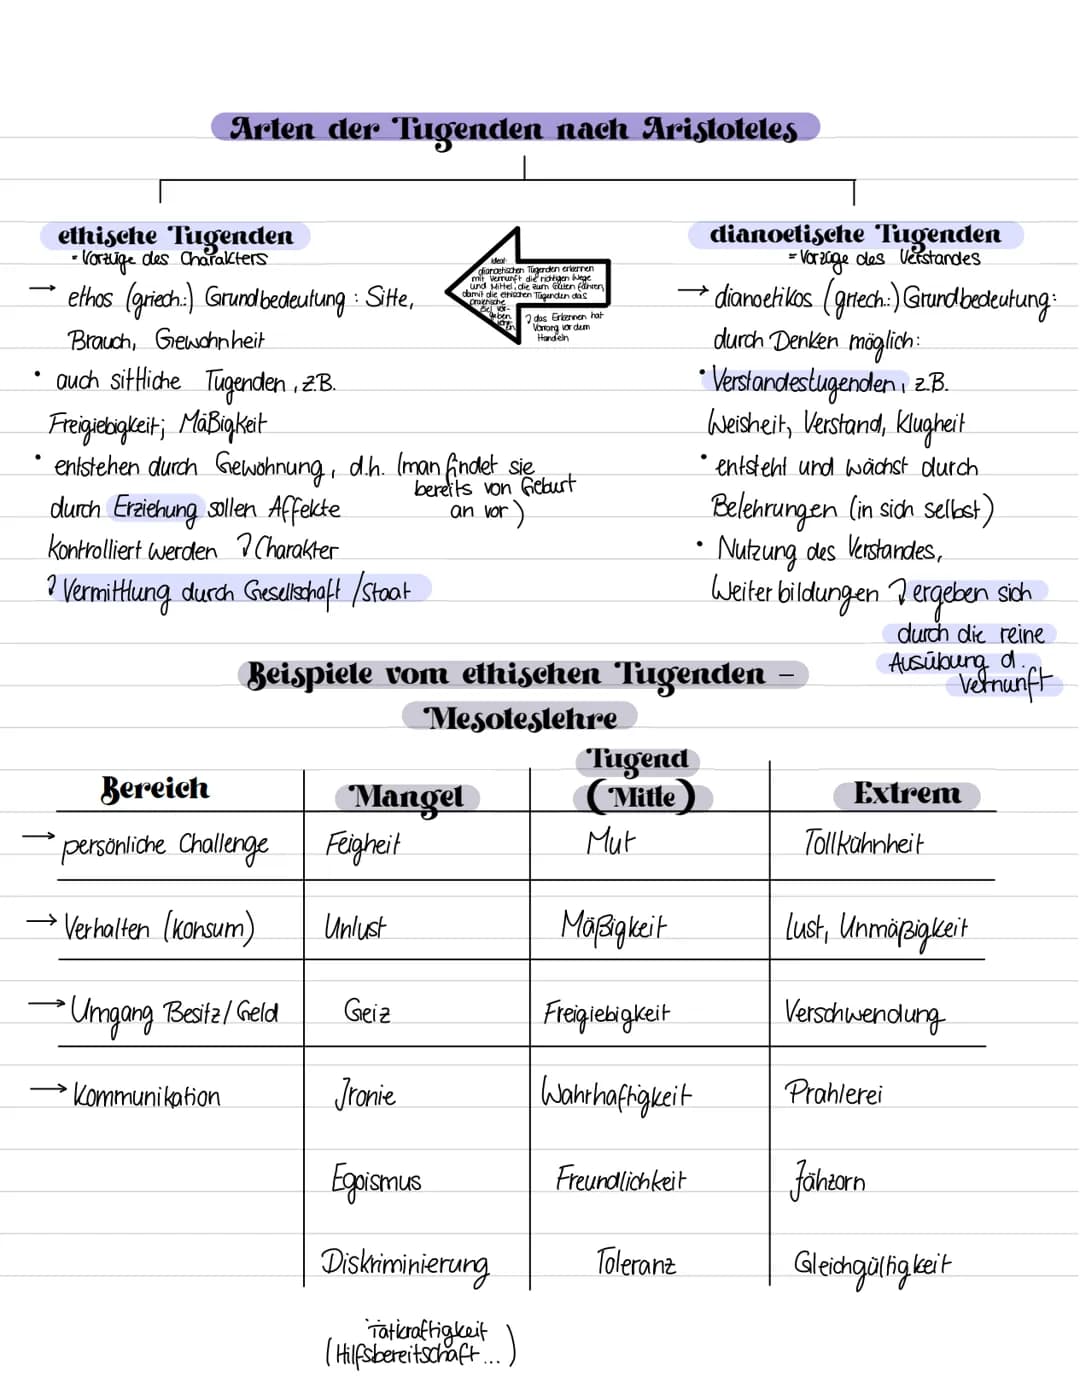 Arten der Tugenden nach Aristoteles
ethische Tugenden
- Vorzüge des Charakters
→ ethos (griech.:) Grundbedeutung : Sitte,
Brauch, Gewohnheit
• auch sittliche Tugenden, z.B.
Freigiebigkeit; Mäßigkeit
• entstehen durch Gewöhnung, d.h. (man findet sie
bereits von Geburt
an vor)
durch Erziehung sollen Affekte
kontrolliert werden → Charakter
→ Vermittlung durch Gesellschaft / Staat
Ideal:
dianoethischen Tugenden erkennen
mit Vernunft die richtigen Wege
und Mittel, die zum Guten führen,
damit die ethischen Tugenden das
→ das Erkennen hat
Vorrang vor dem
Handeln
dianoetische Tugenden
= Vorzüge des Verstandes
→ dianoetikos (griech.:) Grundbedeutung:
durch Denken möglich:
• Verstandestugenden, z.B.
Weisheit, Verstand, Klugheit
• entsteht und wächst durch
Belehrungen (in sich selbst)
• Nutzung des Verstandes,
Weiterbildungen → ergeben sich
durch die reine
Ausübung d.
Vernunft
Beispiele vom ethischen Tugenden -
Mesoteslehre
Bereich Mangel Tugend (Mitte) Extrem
→ persönliche Challenge Feigheit Mut Tollkühnheit
→ Verhalten (Konsum) Unlust Mäßigkeit Lust, Unmäßigkeit
→ Umgang Besitz/Geld Geiz Freigiebigkeit Verschwendung
→ Kommunikation Ironie Wahrhaftigkeit Prahlerei
Egoismus Freundlichkeit Jähzorn
Diskriminierung Toleranz Gleichgültigkeit
Tatkräftigkeit
(Hilfsbereitschaft...)